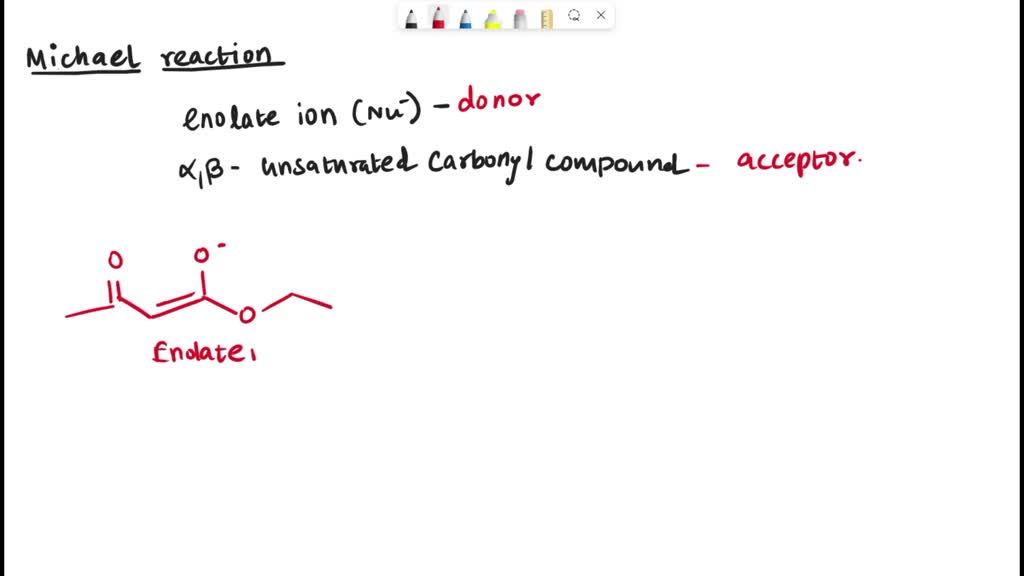 Michael reaction
enolate ion (Nu⁻) - donor
α,β- unsaturated carbonyl compound - acceptor.
O O⁻
O
Enolate,